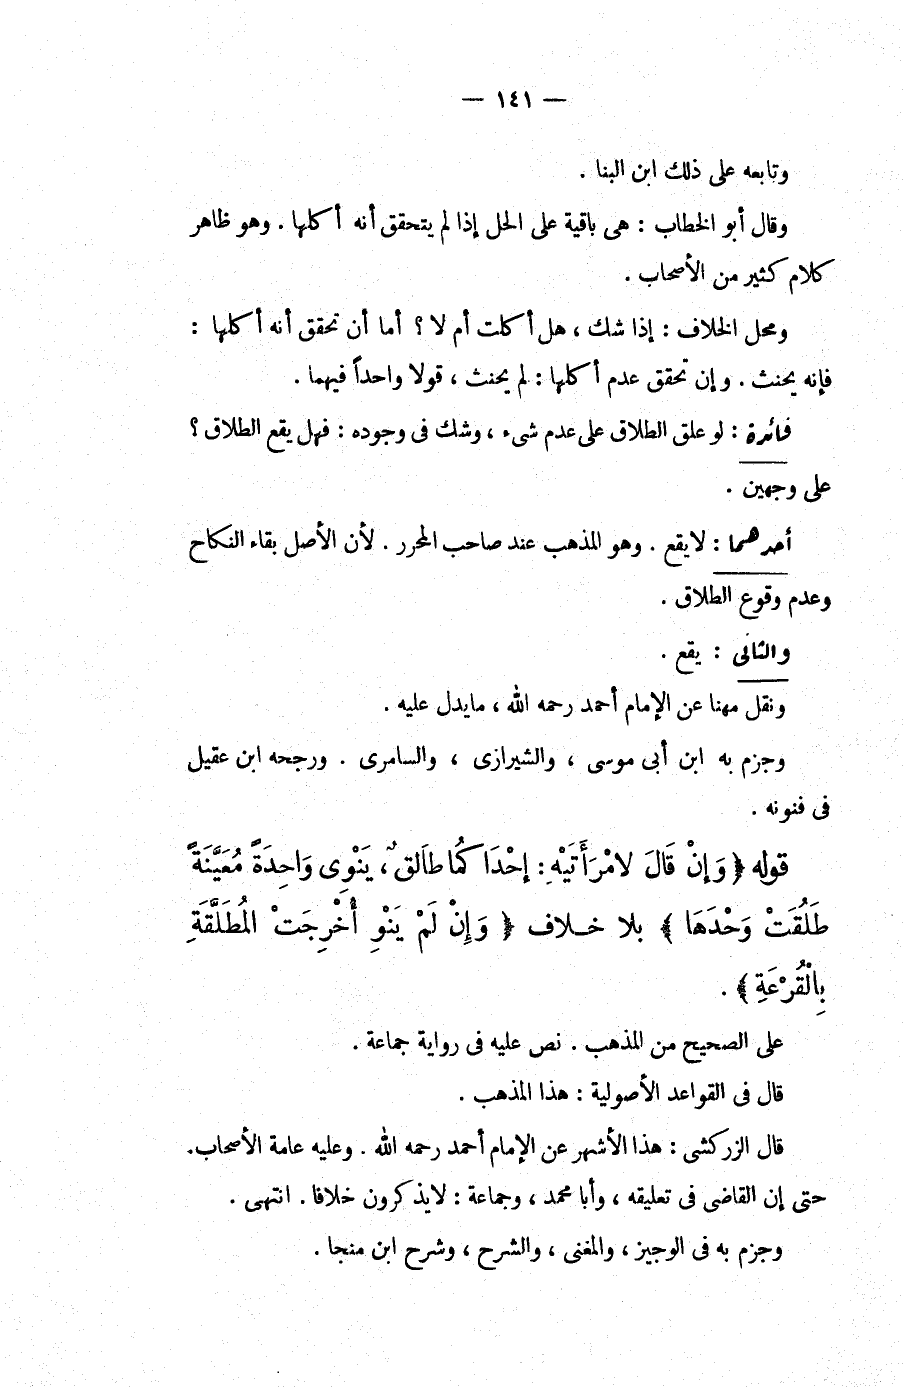 — ١٤١ —
وتابعه على ذلك ابن البنا .
وقال أبو الخطاب : هى باقية على الحل إذا لم يتحقق أنه أكلها . وهو ظاهر
كلام كثير من الأصحاب .
ومحل الخلاف : إذا شك ، هل أكلت أم لا ؟ أما أن تحقق أنه أكلها :
فإنه يحنث . وإن تحقق عدم أكلها : لم يحنث ، قولا واحداً فيهما .
فائدة : لو علق الطلاق على عدم شىء ، وشك فى وجوده : فهل يقع الطلاق ؟
على وجهين .
أحدهما : لايقع . وهو المذهب عند صاحب المحرر . لأن الأصل بقاء النكاح
وعدم وقوع الطلاق .
والثانى : يقع .
ونقل مهنا عن الإمام أحمد رحمه الله ، مايدل عليه .
وجزم به ابن أبى موسى ، والشيرازى ، والسامرى . ورجحه ابن عقيل
فى فنونه .
قوله ﴿ وَإِنْ قَالَ لامْرَأَتَيْهِ : إِحْدَاكُمَا طَالَقٌ ، يَنْوِى وَاحِدَةً مُعَيَّنَةً
طَلُقَتْ وَحْدَهَا ﴾ بلا خــلاف ﴿ وَإِنْ لَمْ يَنْوِ أُخْرِجَتْ المُطَلَّقَةِ
بِالْقُرْعَةِ ﴾ .
على الصحيح من المذهب . نص عليه فى رواية جماعة .
قال فى القواعد الأصولية : هذا المذهب .
قال الزركشى : هذا الأشهر عن الإمام أحمد رحمه الله . وعليه عامة الأصحاب.
حتى إن القاضى فى تعليقه ، وأبا محمد ، وجماعة : لايذكرون خلافا . انتهى .
وجزم به فى الوجيز ، والمغنى ، والشرح ، وشرح ابن منجا .